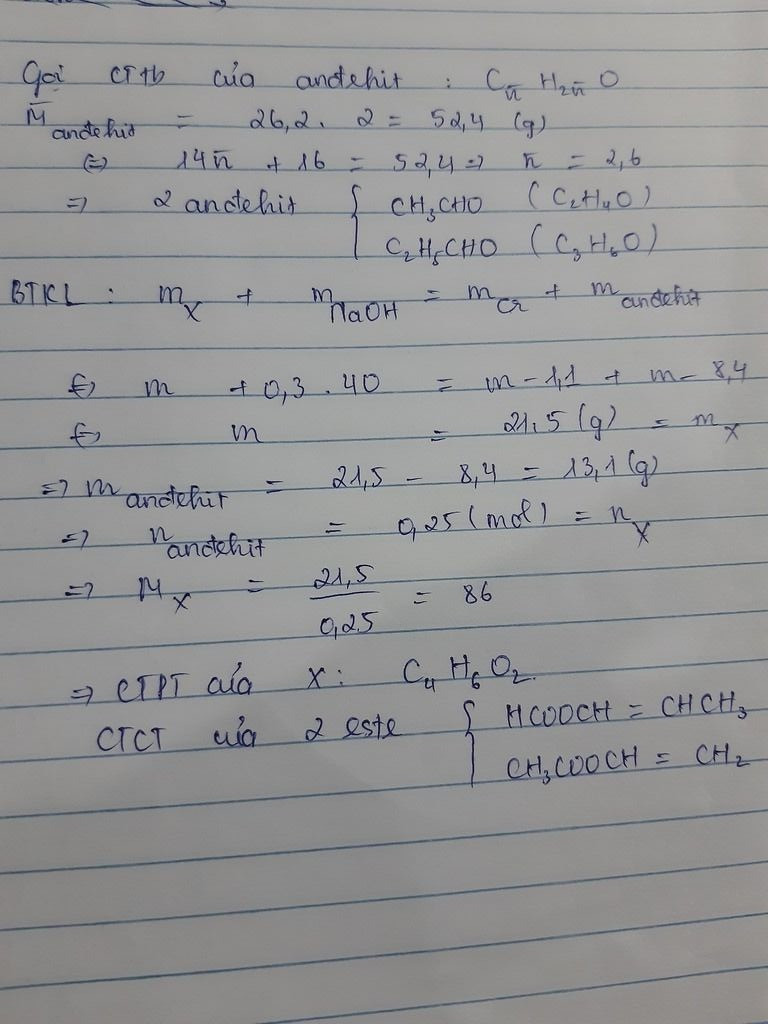 Gọi CTtb của anđehit : Cn̄ H2n̄ O
M̄ anđehit = 26,2 . 2 = 52,4 (g)
⇔ 14n̄ + 16 = 52,4 ⇒ n̄ = 2,6
⇒ 2 anđehit { CH3CHO ( C2H4O )
C2H5CHO ( C3H6O )
BTKL : mX + mNaOH = mCr + manđehit
⇔ m + 0,3 . 40 = m - 1,1 + m - 8,4
⇔ m = 21,5 (g) = mX
⇒ manđehit = 21,5 - 8,4 = 13,1 (g)
⇒ nanđehit = 0,25 (mol) = nX
⇒ MX = 21,5 / 0,25 = 86
⇒ CTPT của X : C4 H6 O2.
CTCT của 2 este { HCOOCH = CHCH3
CH3COOCH = CH2